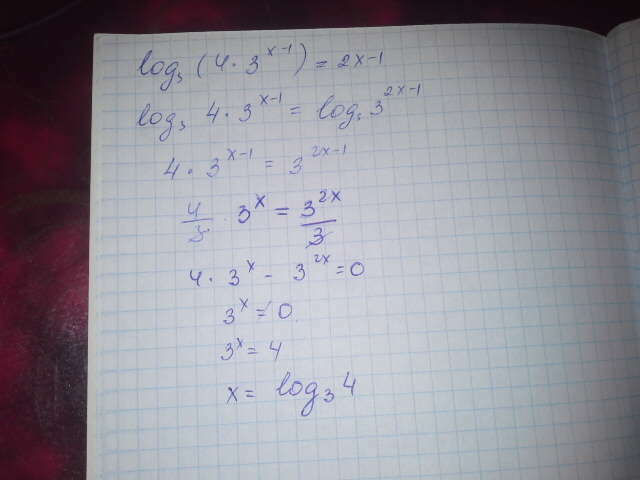 log₃ (4 · 3^(x-1)) = 2x-1
log₃ 4 · 3^(x-1) = log₃ 3^(2x-1)
4 · 3^(x-1) = 3^(2x-1)
4/3 · 3^x = 3^(2x)/3
4 · 3^x - 3^(2x) = 0
3^x ≠ 0
3^x = 4
x = log₃ 4